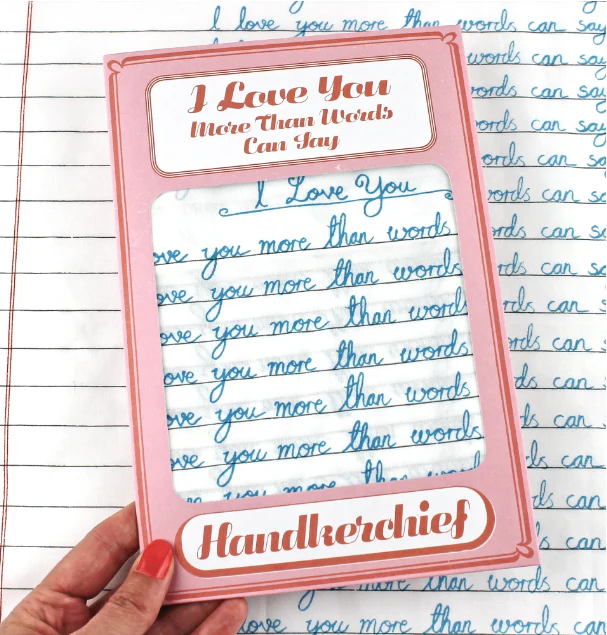 I love you more than words can say
I Love You
More Than Words
Can Say
I Love You
ove you more than words
ove you more than words
ove you more than words
ove you more than words
ove you more than words
ove you more than words
you more than word
Handkerchief
words can say
words can say
ords can say
ords can say
words can sa
ords can sa
rds can sa
rds can s
rds can s
ds can s
ds can
ds can
can
can
more than words can
love you more than words can